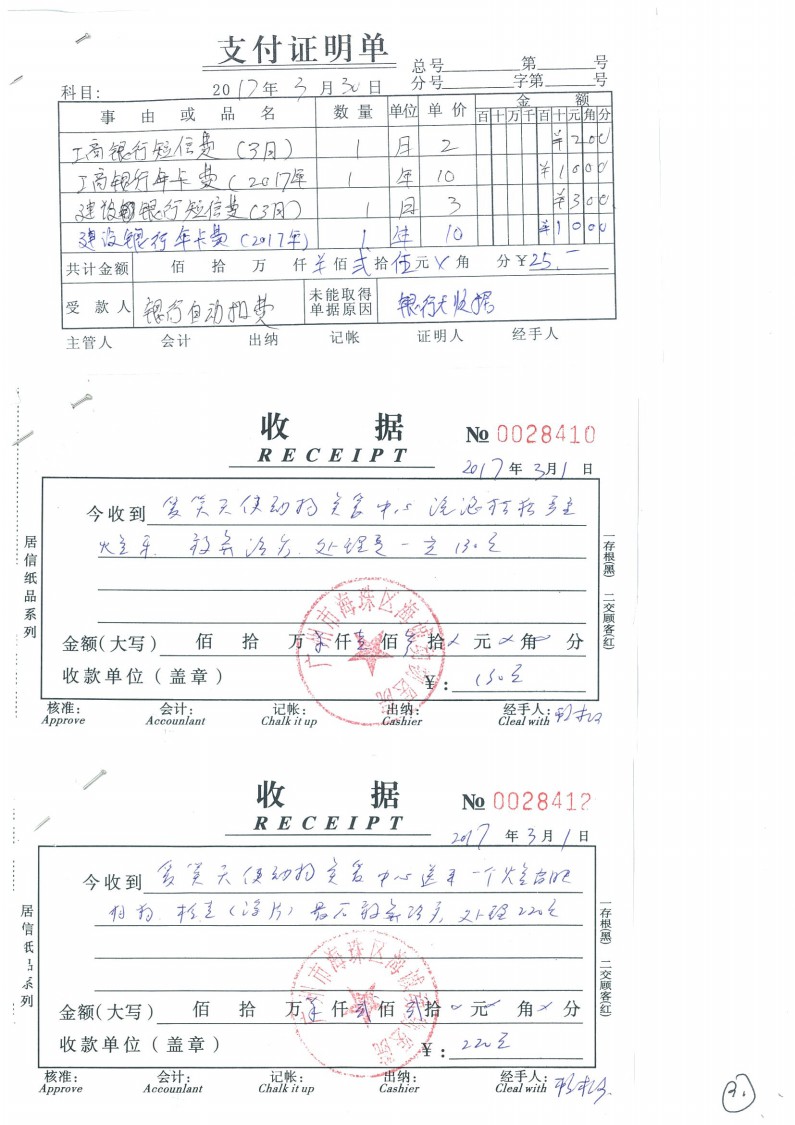 支付证明单
总号 第 号
分号 字第 号
科目: 2017年 3 月 30 日
事 由 或 品 名 数 量 单位 单 价 金 额
百 十 万 千 百 十 元 角 分
工商银行短信费(3月) 1 月 2 ¥ 2 0 0
工商银行年卡费(2017年 1 年 10 ¥ 1 0 0 0
建设银行短信费(3月) 1 月 3 ¥ 3 0 0
建设银行年卡费(2017年) 1 年 10 ¥ 1 0 0 0
共计金额 佰 拾 万 仟 佰 贰拾伍元 角 分 ¥25.-
受 款 人 银行自动扣费 未能取得单据原因 银行无收据
主管人 会计 出纳 记帐 证明人 经手人
收 据
RECEIPT
№ 0028410
2017年3月1日
今收到 动物 中心
放弃治疗. 处理 130元
金额(大写) 佰 拾 万 仟壹佰叁拾 元 角 分
收款单位(盖章) ¥: 130元
核准: 会计: 记帐: 出纳: 经手人:
Approve Accounlant Chalk it up Cashier Cleal with
居信纸品系列
一存根(黑) 二交顾客(红)
广州市海珠区海 动物医院
收 据
RECEIPT
№ 0028412
2017年3月1日
今收到 天使动物 中心送来一个
检查( 片) 放弃治疗, 处理220元
金额(大写) 佰 拾 万 仟贰佰贰拾 元 角 分
收款单位(盖章) ¥: 220元
核准: 会计: 记帐: 出纳: 经手人:
Approve Accounlant Chalk it up Cashier Cleal with
居信纸品系列
一存根(黑) 二交顾客(红)
广州市海珠区海 动物医院